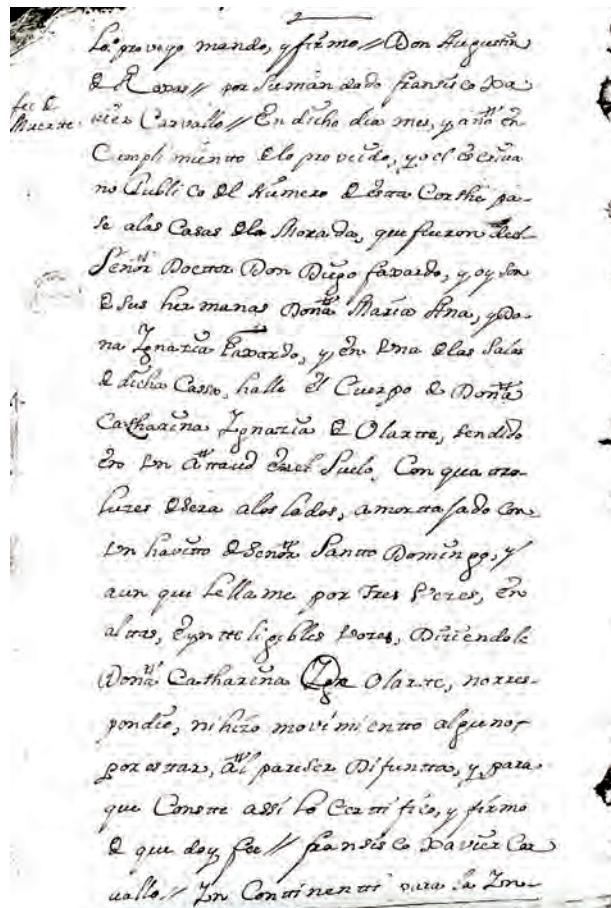 2
Lo proveyo mando, y firmo // Don Augustin
de Roxas // por su mandado fransisco Xa
fee de
Muerte.
vier Carvallo // En dicho dia mes, y año en
Cumplimiento de lo proveido, yo el escriva
no Publico del Número de esta Corthe pa-
se a las Casas de la Morada, que fueron del
Señor Doctor Don Diego faxardo, y oy son
de sus hermanas Doña Maria Ana, y Do-
ña Ignacia Faxardo, y en una de las salas
de dicha Cassa, halle el Cuerpo de Doña
Catharina Ignacia de Olarte, tendido
en un attaud en el suelo, Con quatro
luzes de sera a los lados, amorttajado con
un havitto de señor Santto Domingo, y
aun que le llame por tres vezes, en
altas, e ynttelegibles vozes, Diziendole
Doña Catharina Ign Olarte, no rres-
pondio, ni hizo movimientto alguno
por esttar, al pareser Difuntta, y para
que Constte assi lo Certtifico, y firmo
de que doy fee // fransisco Xavier Car
vallo // In Conttinentti para la Ym-